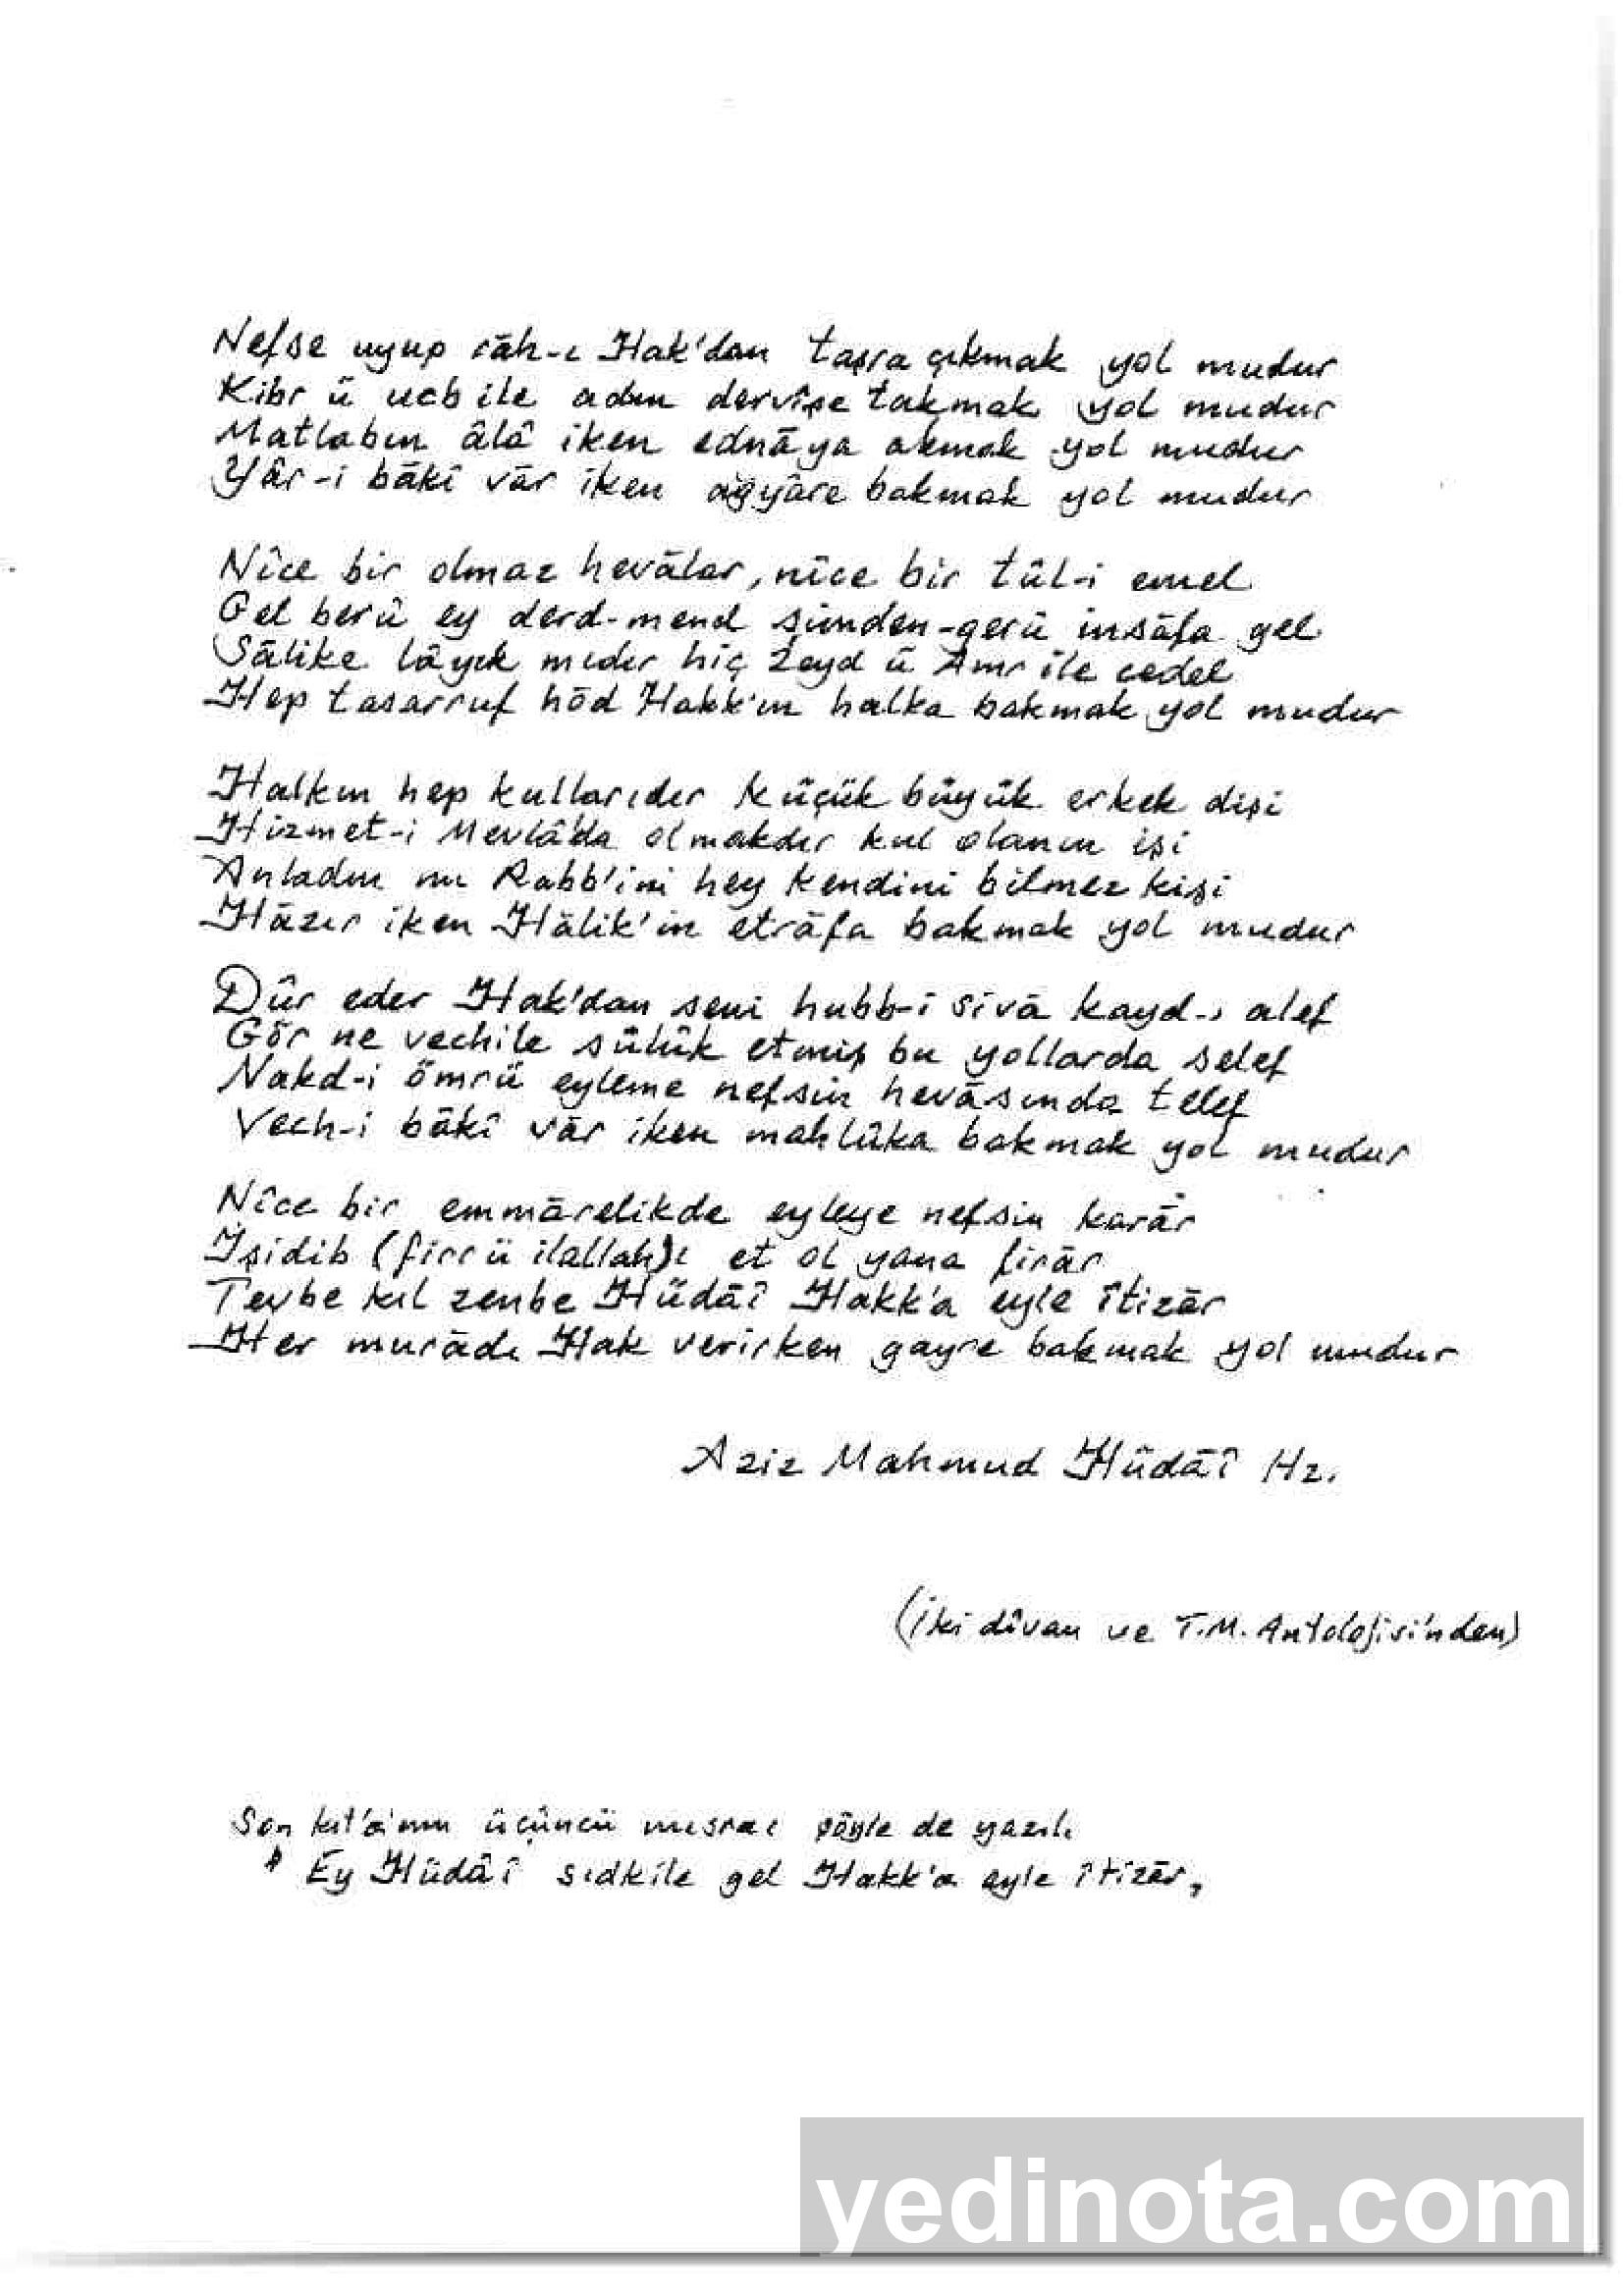 Nefse uyup râh-ı Hak'dan taşra çıkmak yol mudur
Kibr ü ucb ile adın dervîşe takmak yol mudur
Matlabın âlâ iken ednâya akmak yol mudur
Yâr-i bâkî vâr iken ağyâre bakmak yol mudur
Nîce bir olmaz hevâlar, nîce bir tûl-i emel
Gel berû ey derd-mend şimden-gerü insâfa gel
Sâlike lâyık mıdır hiç Zeyd ü Amr ile cedel
Hep tasarruf hôd Hakk'ın halka bakmak yol mudur
Halkın hep kullarıdır küçük büyük erkek dişi
Hizmet-i Mevlâ'da olmakdır kul olanın işi
Anladın mı Rabb'ini hey kendini bilmez kişi
Hâzır iken Hâlik'in etrâfa bakmak yol mudur
Dûr eder Hak'dan seni hubb-i sivâ kayd-ı alef
Gör ne vechile sülûk etmiş bu yollarda selef
Nakd-i ömrü eyleme nefsin hevâsında telef
Vech-i bâkî vâr iken mahlûka bakmak yol mudur
Nîce bir emmârelikde eyleye nefsin karâr
İşidib (firrü ilallah)ı et ol yana firâr
Tevbe kıl zenbe Hüdâî Hakk'a eyle îtizâr
Her murâdı Hak verirken gayre bakmak yol mudur
Aziz Mahmud Hüdâî Hz.
(İki dîvan ve T.M. Antolojisi'nden)
Son kıt'a'nın üçüncü mısraı şöyle de yazılı
" Ey Hüdâî sıdkile gel Hakk'a eyle îtizâr,
yedinota.com